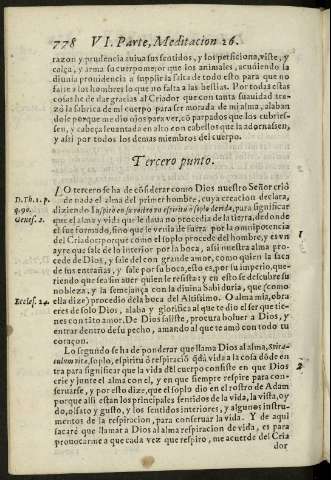 778 VI. Parte, Meditacion 26.
razon y prudencia auiua sus sentidos, y los perficiona, viste, y
calça, y arma su cuerpo mejor que los animales, acudiendo la
diuina prouidencia a suplir la falta de todo esto para que no
falte a los hombres lo que no falta a las bestias. Por todas estas
cosas he de dar gracias al Criador que con tanta suauidad tra-
zó la fabrica de mi cuerpo para ser morada de mi alma, alaban
dole porque me dio ojos para ver, cõ parpados que los cubries-
sen, y cabeça leuantada en alto con cabellos que la adornassen,
y assi por todos los demas miembros del cuerpo.
Tercero punto.
D. Th. 1. p.
q. 90.
Genes. 2.
LO tercero se ha de cõsiderar como Dios nuestro Señor crió
de nada el alma del primer hombre, cuya creacion declara,
diziendo Inspiró en su rostro un espiritu o soplo de vida, para significar
que el alma y vida que le daua no procedia de la tierra, de donde
el fue formado, sino que le venia de fuera por la omnipotencia
1
del Criador: porque como el soplo procede del hombre, es vn
ayre que sale de lo interior por la boca, assi nuestra alma pro-
cede de Dios, y sale del con grande amor, como quien la saca
de sus entrañas, y sale por su boca, esto es, por su imperio, que-
riendo que sea sin auer quien le resista: y en esto se descubre su
nobleza, y la semejança con la diuina Sabiduria, que (como
Eccles. 24.
ella dize) procedio de la boca del Altissimo. O alma mia, obra
eres de solo Dios, alaba y glorifica al que te dio el ser que tie-
nes con tãto amor. De Dios saliste, procura boluer a Dios, y
entrar dentro de su pecho, amando al que te amó con todo tu
coraçon.
Lo segundo se ha de ponderar que llama Dios al alma, Spira-
culum vitæ, soplo, espiritu ó respiració q̃ dà vida a la cosa dõde en
2
tra para significar que la vida del cuerpo consiste en que Dios
crie y junte el alma con el, y en que siempre respire para con-
seruarse, y por esto dize, que el soplo dio en el rostro de Adam
porque alli estan los principales sentidos de la vida, la vista, oy-
do, olfato y gusto, y los sentidos interiores, y algunos instru-
mentos de la respiracion, para conseruar la vida. Y de aqui
sacaré que llamar a Dios al alma respiracion de vida, es para
prouocarme a que cada vez que respiro, me acuerde del Cria
dor